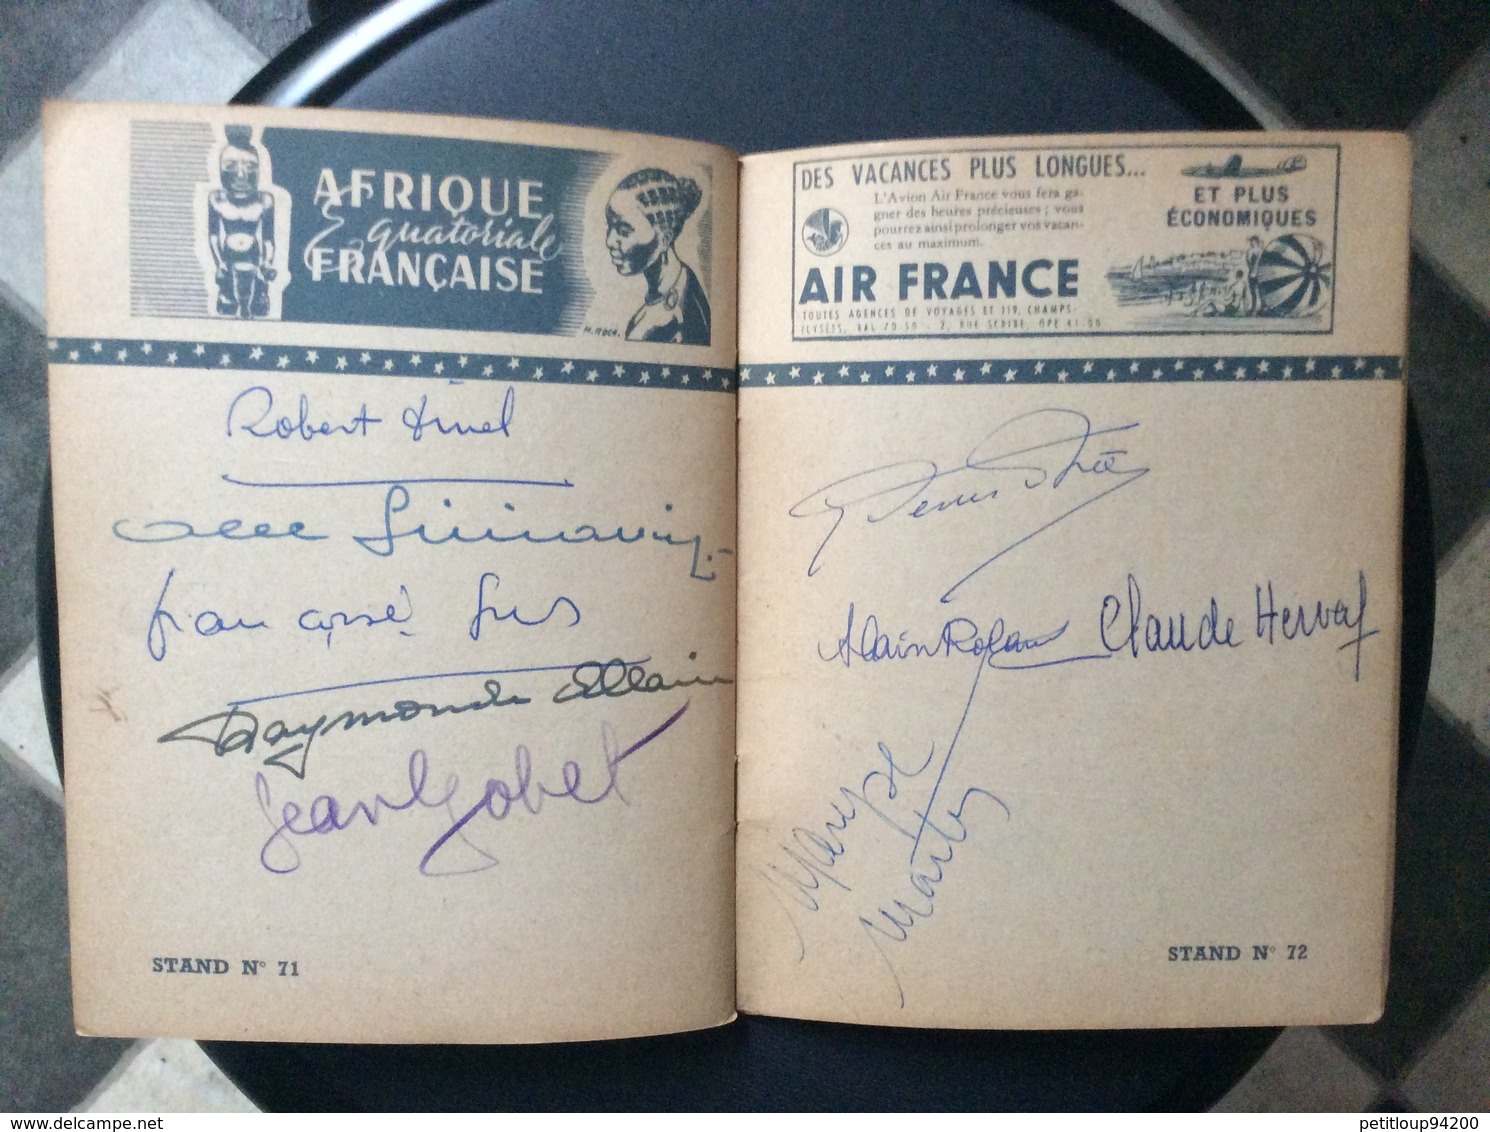 AFRIQUE
Equatoriale
FRANÇAISE
Robert
Raymonde Allain
Jean Gobet
STAND N° 71
DES VACANCES PLUS LONGUES...
L'Avion Air France vous fera ga-
gner des heures précieuses ; vous
pourrez ainsi prolonger vos vacan-
ces au maximum.
ET PLUS
ÉCONOMIQUES
AIR FRANCE
TOUTES AGENCES DE VOYAGES ET 119, CHAMPS-
ELYSÉES, BAL 70-50 - 2, RUE SCRIBE, OPE 41-00
Alain Roland Claude Herval
Maryse
Martin
STAND N° 72
petitloup94200
delcampe.net